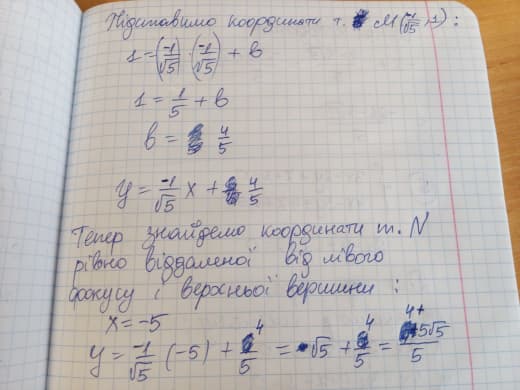 Підставимо координати т. М(-1/√5, 1) :
1 = (-1/√5) · (-1/√5) + b
1 = 1/5 + b
b = 4/5
y = -1/√5 x + 4/5
Тепер знайдемо координати т. N
рівно віддаленої від лівого
фокусу і верхньої вершини :
x = -5
y = -1/√5 (-5) + 4/5 = √5 + 4/5 = 4+5√5/5